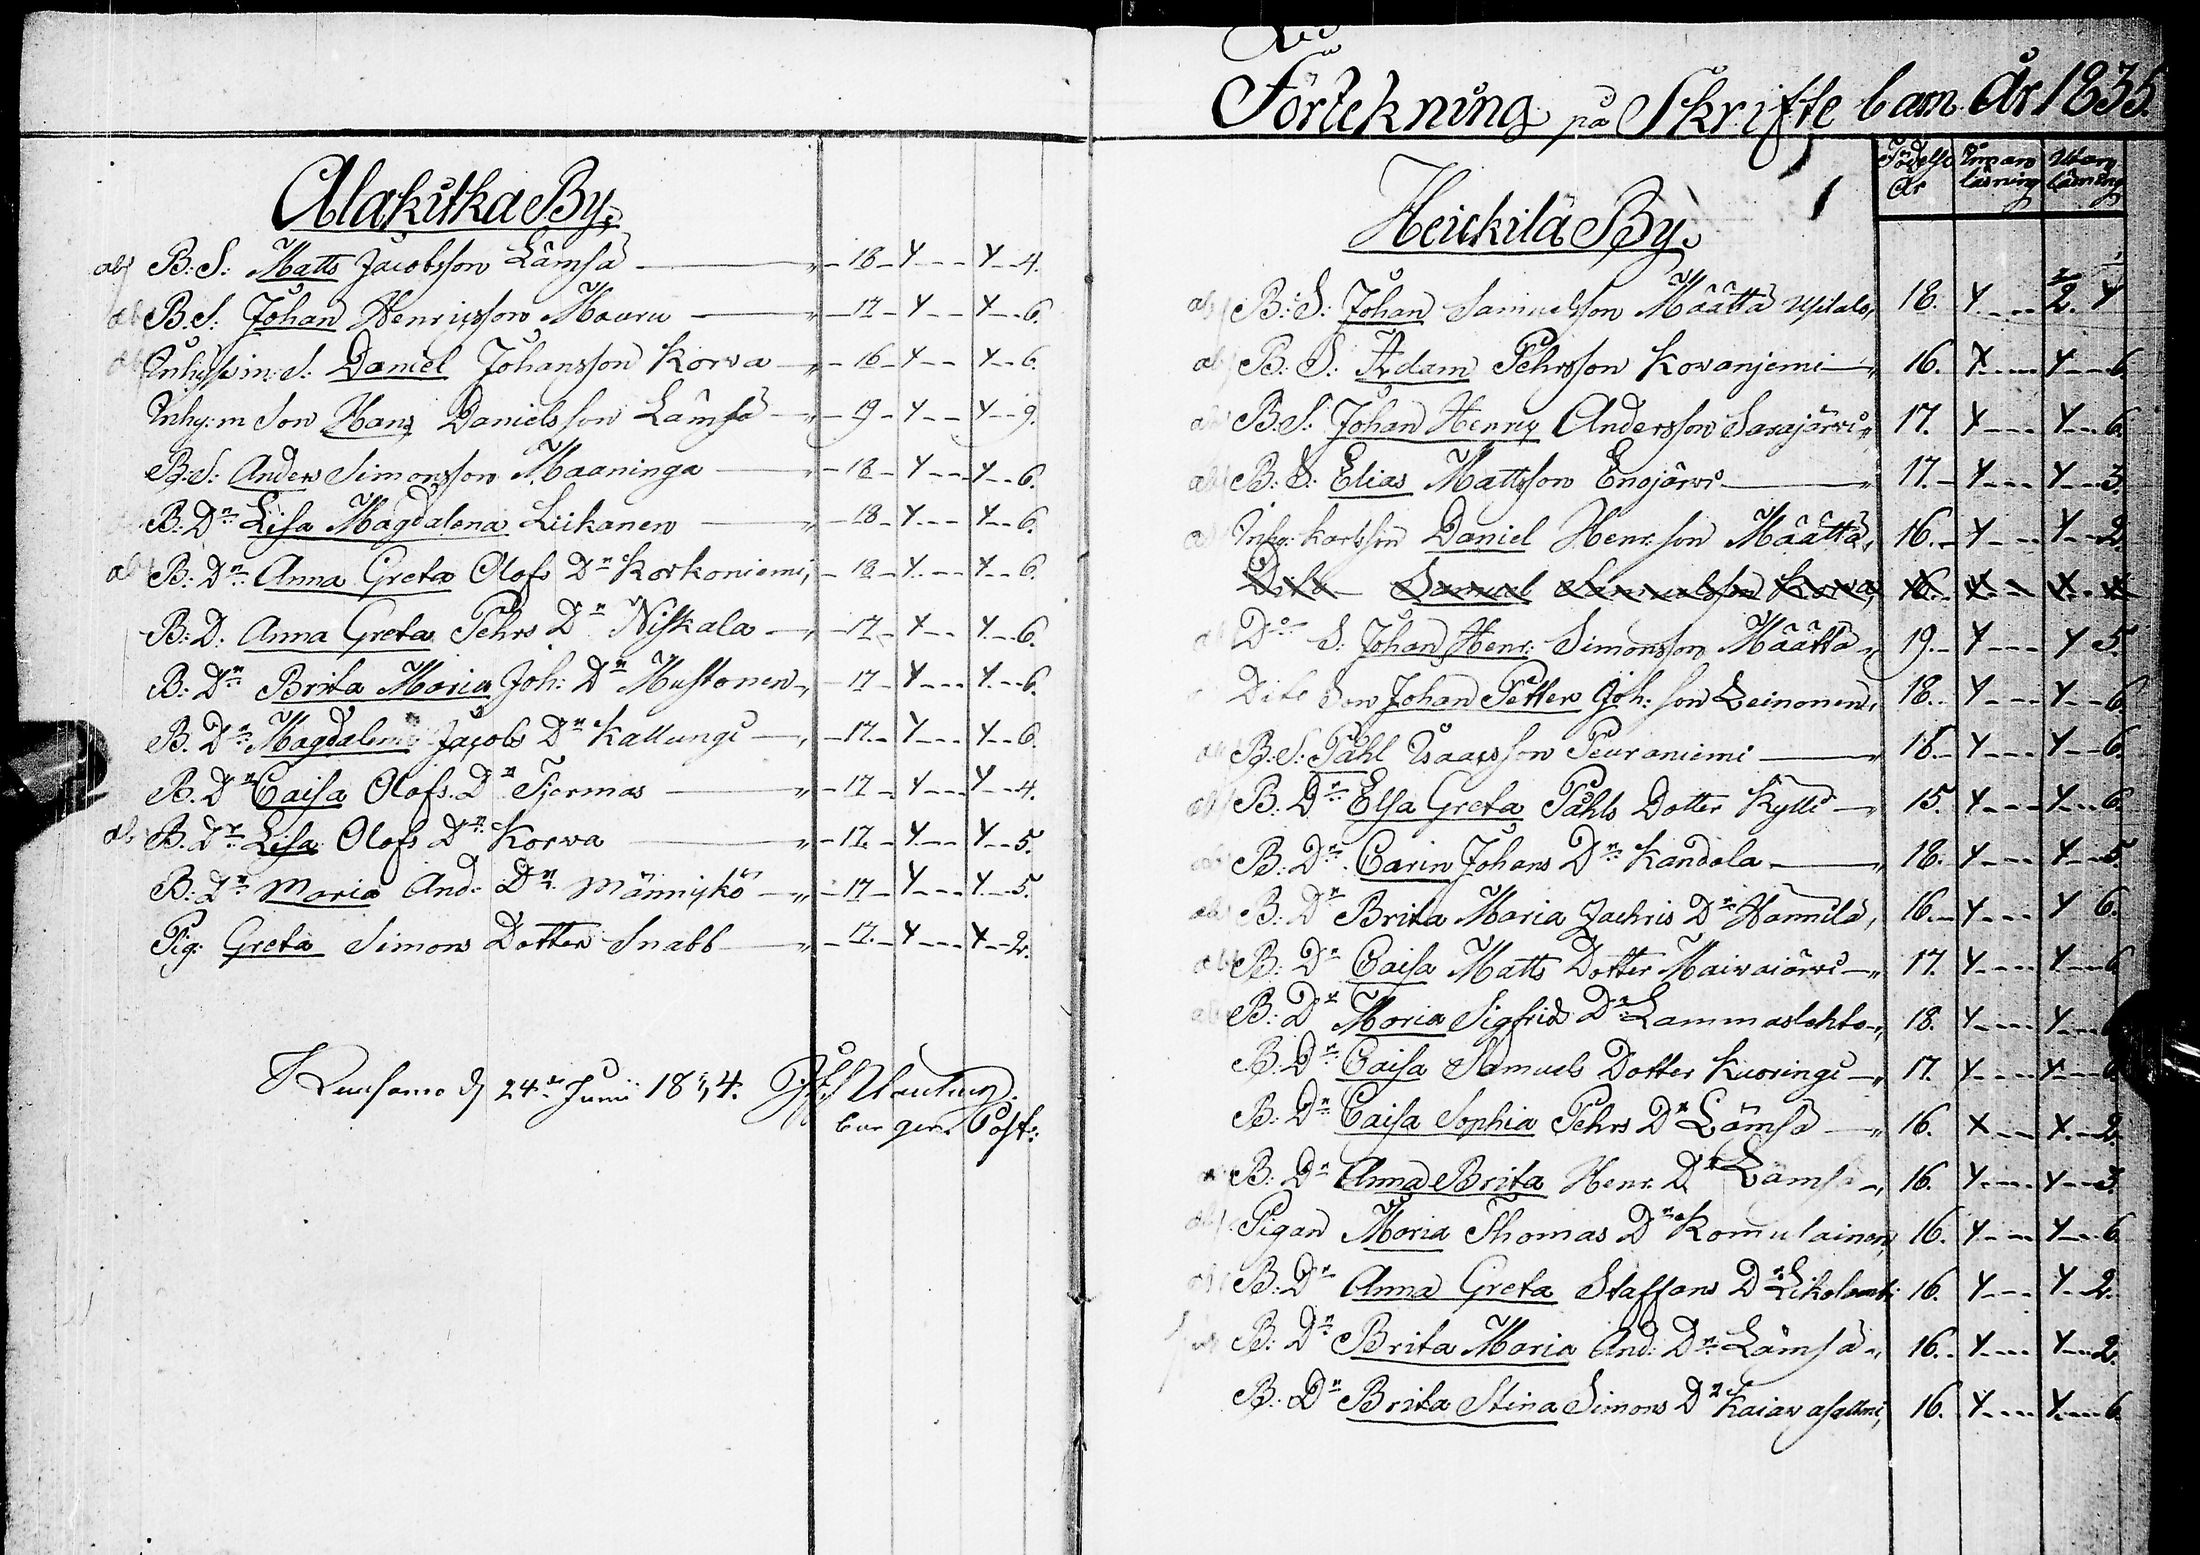 Alakitka By.
abs B: S: Matts Jacobsson Lämsä " 18 Y Y 4.
abs B. S: Johan Henricsson Mouru " 17 Y Y 6.
abs Inhysin: S: Daniel Johansson Korva " 16 Y Y 6.
Inhy: m Son Hans Danielsson Lämsä " 19 Y Y 9.
B. S: Anders Simonsson Maaninga " 18 Y Y 6.
B: Dr Lisa Magdalena Liikanen " 18 Y Y 6.
abs B: Dr Anna Greta Olofs Dr Korkoniemi, 18 Y Y 6.
B: D: Anna Greta Pehrs Dr Niskala " 17 Y Y 6.
B: Dr Brita Maria Joh: Dr Mustonen " 17 Y Y 6.
B. Dr Magdalena Jacobs Dr Kallungi " 17 Y Y 6.
B. Dr Caisa Olofs Dr Tjermas " 17 Y Y 4.
abs B. Dr Lisa Olofs Dr Korva " 17. Y Y 5.
B: Dr Maria And: Dr Männikö " 17 Y Y 5.
Pig: Greta Simons Dotter Snabb " 17. Y Y 2.
Kuusamo d 24de Junii 1834.
Past:
Förtekning på Skriftebarn År 1835.
Födelse År Innan läsning Utan läsning
Heickilä By.
abs B: S: Johan Samuelsson Määttä 18. Y 2. Y
abs B: S: Adam Pehrsson Kovanjemi " 16. X Y 6.
abs B. S: Johan Henric Andersson Sarajärvi " 17. Y Y 6.
abs B: S: Elias Mattsson Enojärvi " 17. Y Y 3.
abs Inhy: karlsson Daniel Henr: son Määttä, 16. Y Y 2.
Dito Samuel Samuelsson Korva 16. Y Y
abs Do S: Johan Henr: Simonsson Määttä " 19. Y Y 5.
Dito Son Johan Petter Joh: son Leinonen, 18. Y Y 6.
abs B: S: Påhl Isacsson Peuraniemi " 18. Y Y 6.
abs B: Dr Elsa Greta Påhls Dotter Kylli " 15. Y Y 6.
abs B: Dr Carin Johans Dr Kandola " 18. Y Y 5.
abs B: Dr Brita Maria Zachris Dr Hannila, 16. Y Y 6.
abs B: Dr Caisa Matts Dotter Maivaiärvi " 17. Y Y 6
abs B: Dr Maria Sigfrids Dr Lammaslehto " 18. Y Y 6
B: Dr Caisa Samuels Dotter Kuoringi " 17. Y Y 6
B: Dr Caisa Sophia Pehrs Dr Lämsä " 16. X X 2.
B: Dr Anna Brita Henr. Dr Lämsä " 16. Y Y 3.
abs Pigan Maria Thomas Dr Komulainen, 16. Y Y 6.
abs B: Dr Anna Greta Staffans Dr 16. Y Y 2.
B: Dr Brita Maria And: Dr Lämsä " 16. Y Y 2.
B: Dr Brita Stina Simons Dr 16. Y Y 6.